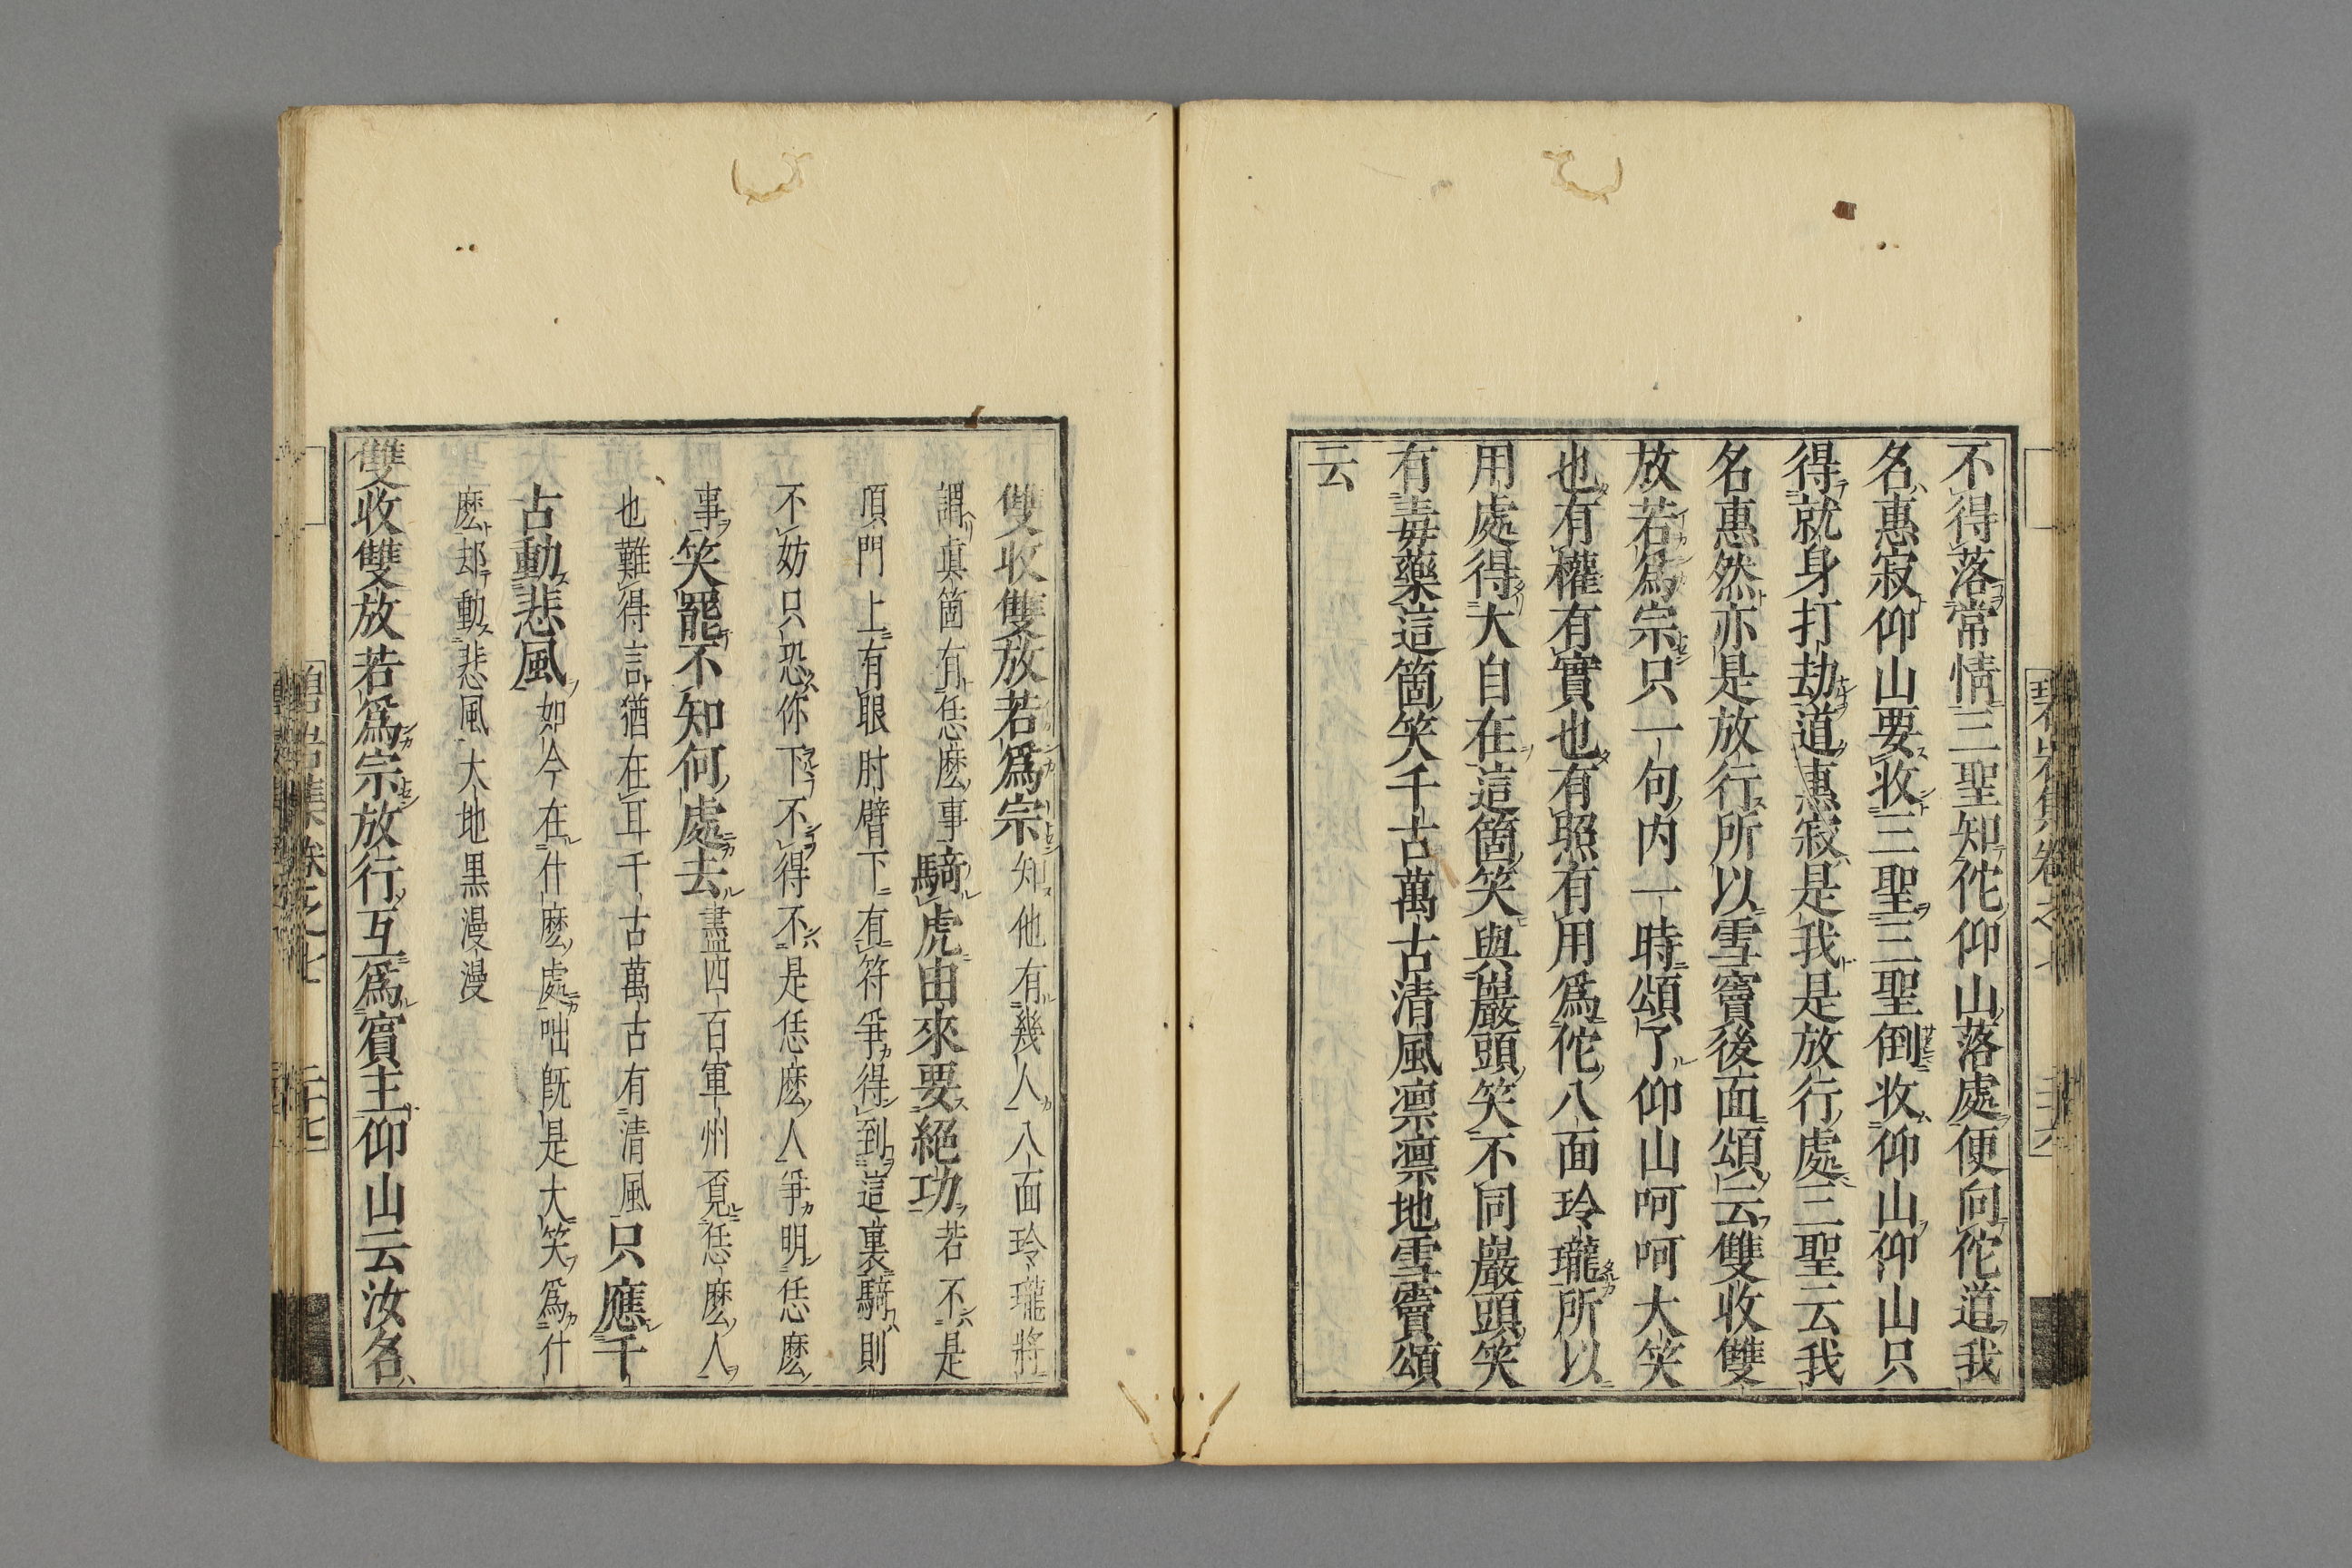 不得落常情三聖知佗仰山落處便向佗道我
名惠寂仰山要收三聖三聖倒收仰山仰山只
得就身打劫道惠寂是我是放行處三聖云我
名惠然亦是放行所以雪竇後面頌云雙收雙
放若爲宗只一句内一時頌了仰山呵呵大笑
也有權有實也有照有用爲佗八面玲瓏所以
用處得大自在這箇笑與巖頭笑不同巖頭笑
有毒藥這箇笑千古萬古清風凛凛地雪竇頌
云
雙收雙放若爲宗知他有幾人八面玲瓏將
謂眞箇有恁麽事騎虎由來要絕功若不是
頂門上有眼肘臂下有符爭得到這裏騎則
不妨只恐你下不得不是恁麽人爭明恁麽
事笑罷不知何處去盡四百軍州覓恁麽人
也難得言猶在耳千古萬古有清風只應千
古動悲風如今在什麽處咄既是大笑爲什
麽却動悲風大地黒漫漫
雙收雙放若爲宗放行互爲賓主仰山云汝名
碧岩集卷之七